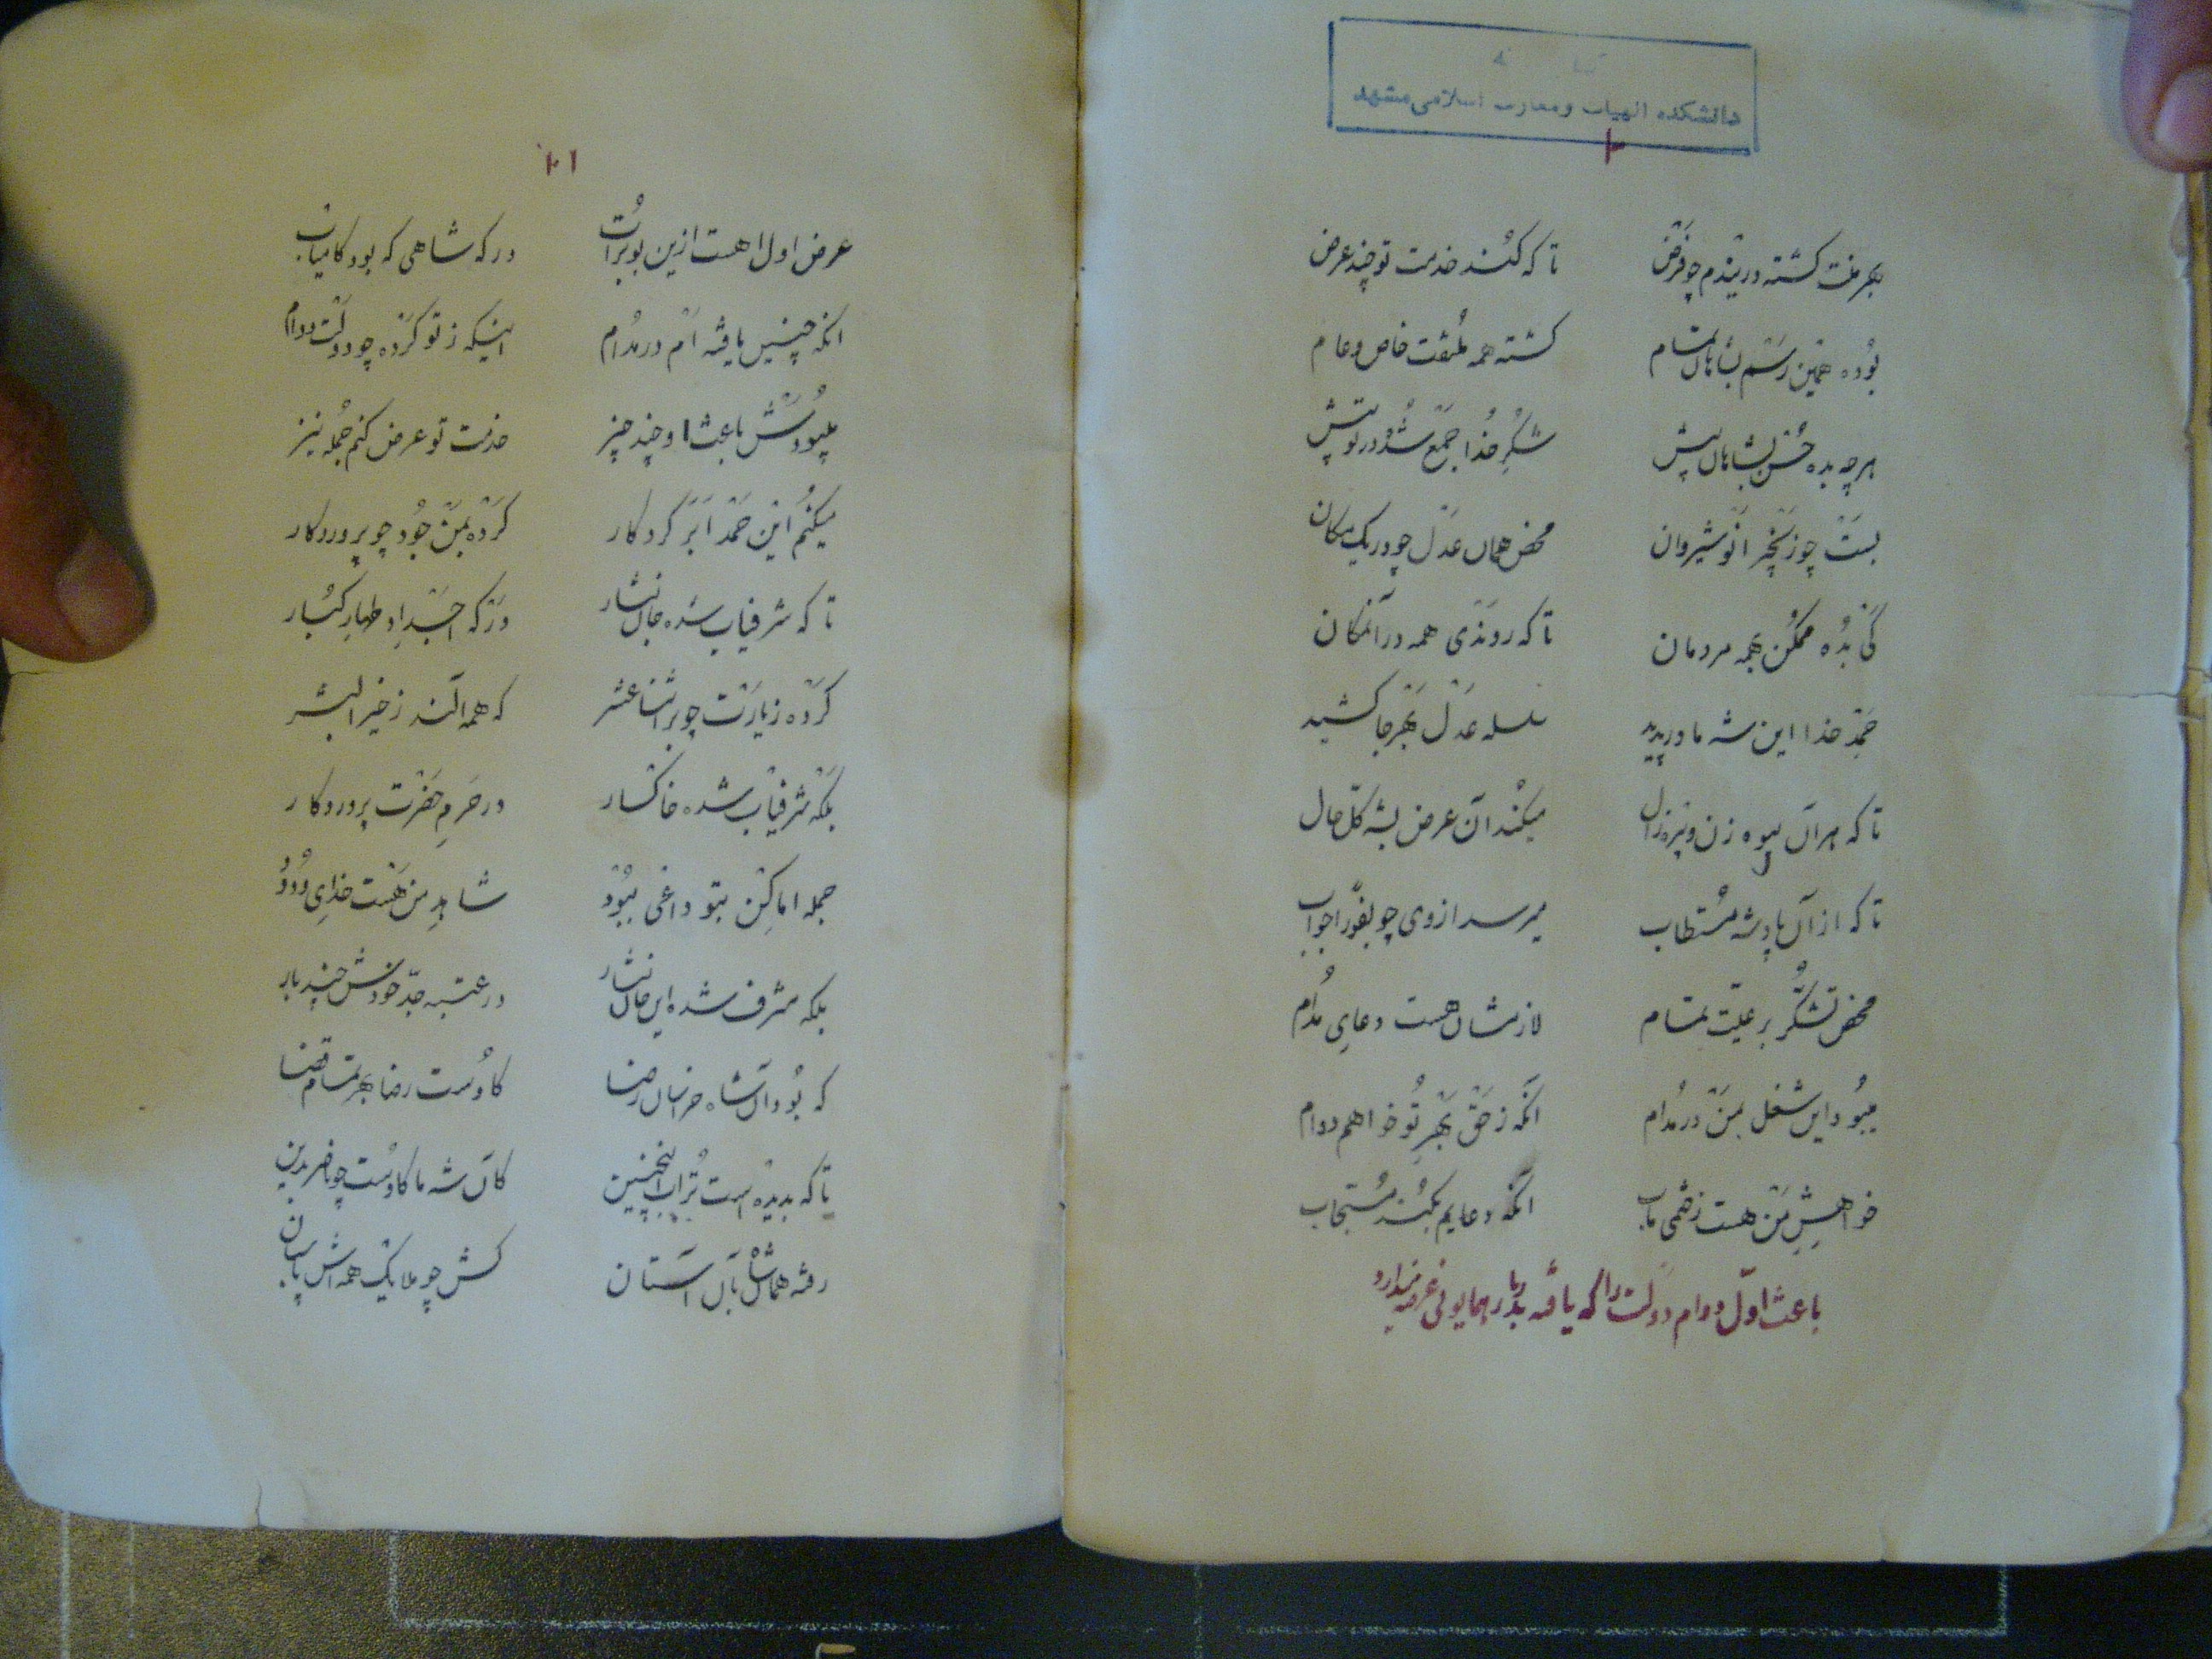 دانشکده الهیات ومعارف اسلامی مشهد
گشته دریندم چو فرض تا که کنند خدمت تو چند عرض
بوده همین رسم بشاهان تمام گشته همه ملتفت خاص و عام
هر چه بده حسن بشاهان پیش شکر خدا جمع شد در تو بیش
بست چو زنجیر انوشیروان محض همان عدل چو در یک مکان
کی بده ممکن بهمه مردمان تا که روندی همه در آنمکان
حمد خدا این شه ما درپدید سلسله عدل بهر جا کشید
تا که هر آن بیوه زن و پیره زال میکنند آن عرض بشه کل حال
تا که از آن پادشه مستطاب میرسد از وی چو بفور اجواب
محض تشکر برعیت تمام لازمشان هست دعای مدام
میبود این شغل بمن در مدام آنکه ز حق بهر تو خواهم دوام
خواهش من هست ز ختمی مآب آنکه دعایم بکند مستجاب
باعث اول دوام دولت را که یافته بدربار همایونی عرضه میدارد
۲۱
عرض اول هست ازین بوتراب درکه شاهی که بود کامیاب
آنکه چنین یافته ام در مدام اینکه ز تو کرده چو دولت دوام
میبودش باعث او چند چیز خدمت تو عرض کنم جمله نیز
میکنم این حمد ابر کردکار کرده بمن جود چو پروردکار
تا که شرفیاب شده جان نثار درکه اجداد طهار کبار
کرده زیارت چو بر اثناعشر که همه آلند ز خیر البشر
بلکه شرفیاب شده خاکسار در حرم حضرت پروردکار
جمله اماکن بتو داعی ببود شاهد من هست خدای ودود
بلکه مشرف شده این جان نثار در عتبه جد خودش چند بار
که بود آن شاه خراسان رضا کاوست رضا بهر تمام قضا
تا که بدیده است تراب اینچنین کان شه ما کاوست چو فخر بدین
رفته بآن آستان کش چو ملایک همه اش پاسبان